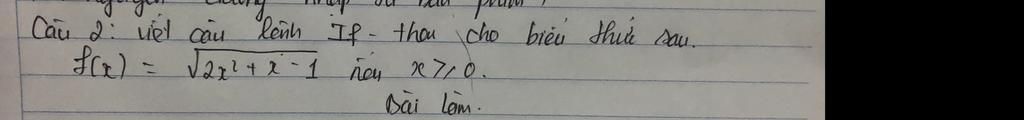 nhập từ bàn phím,
Câu 2: viết câu lệnh If - then cho biểu thức sau.
f(x) = √2x² + x - 1 nếu x ≥ 0.
Bài làm.